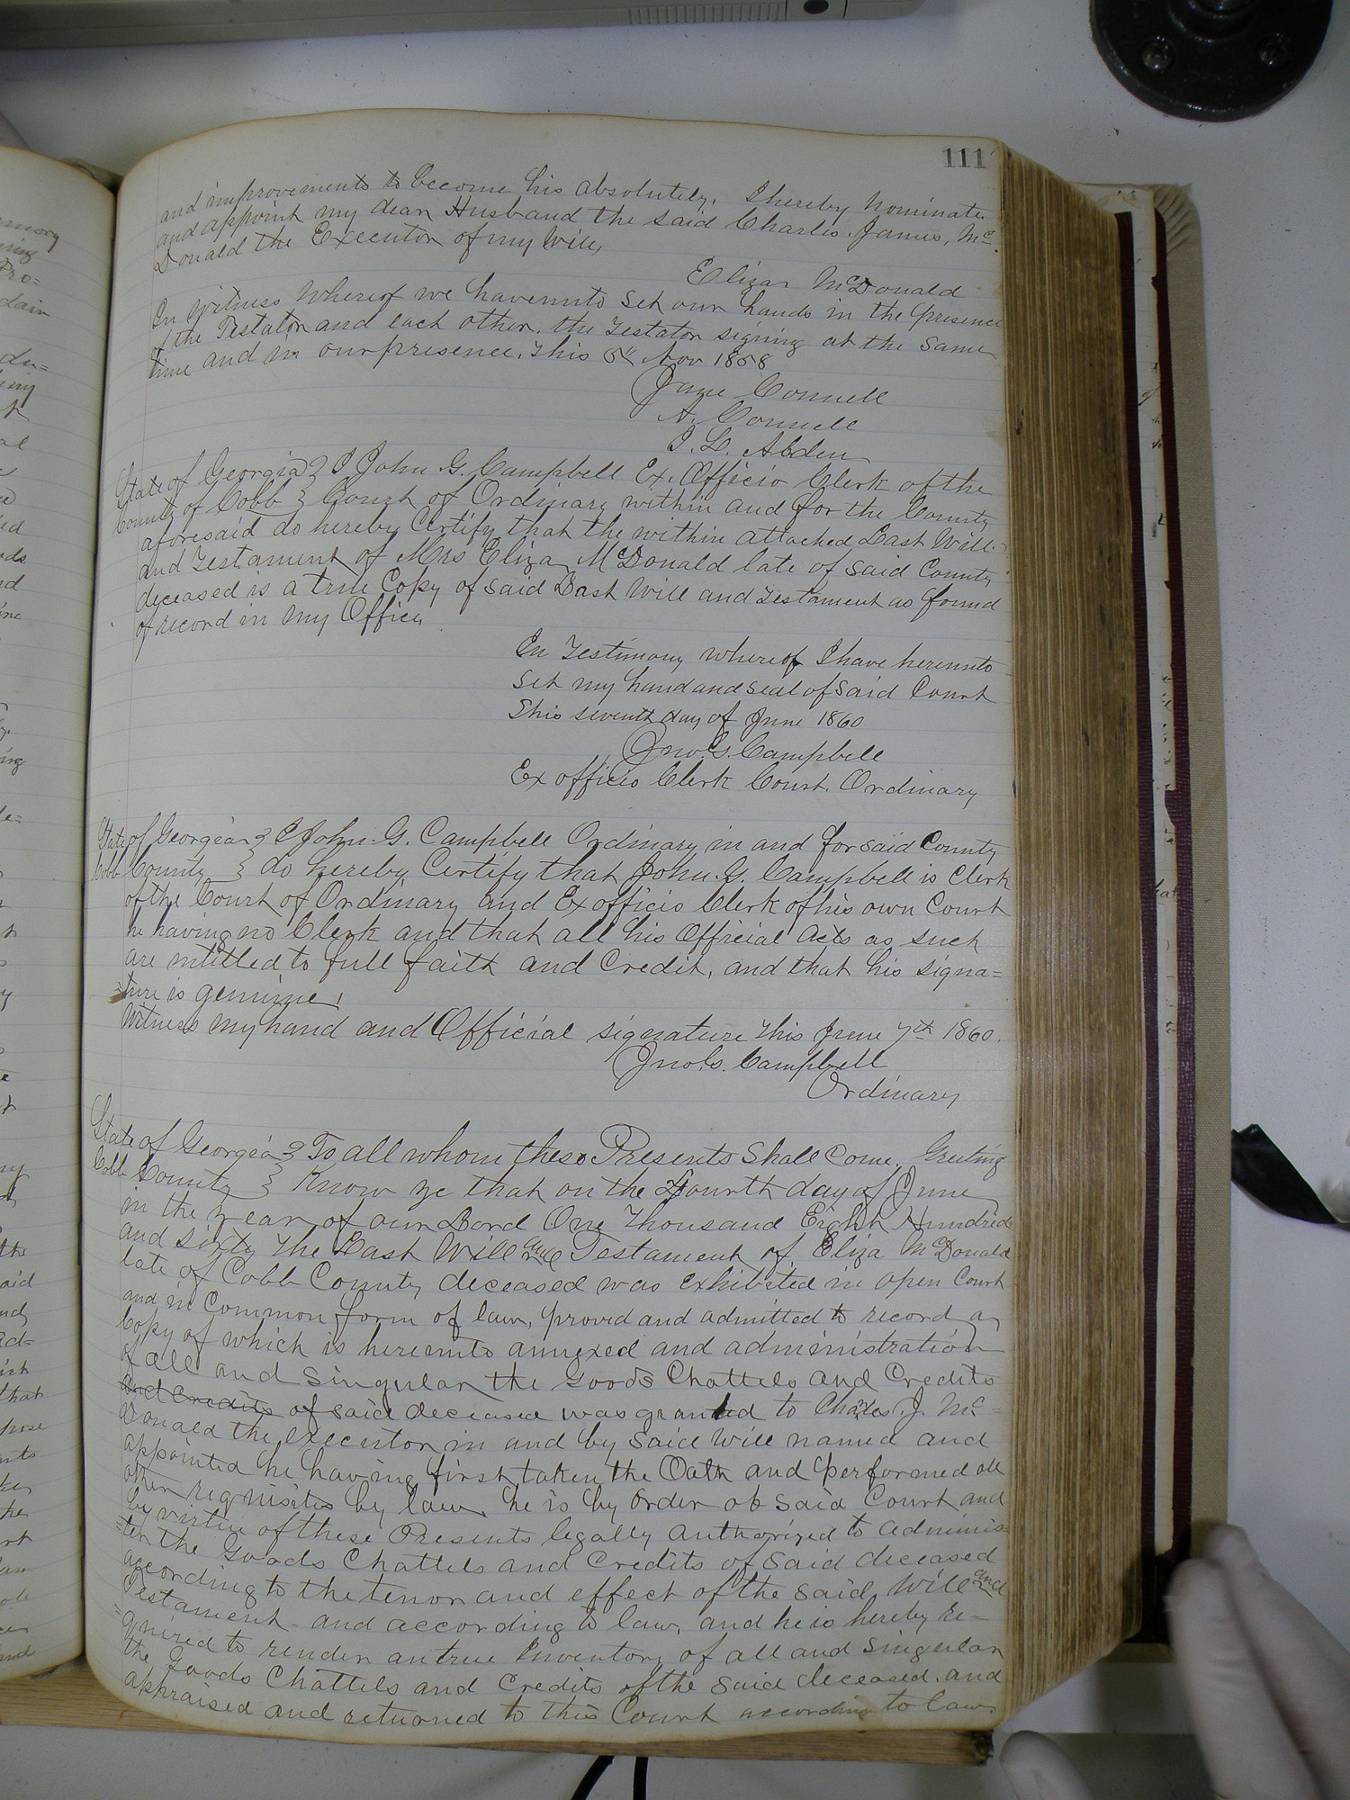 111
and improvements to become his absolutely, I hereby Nominate
and appoint my dear Husband the said Charles James, Mc=
Donald the Executor of my Will,
Eliza McDonald
In Witness Whereof we have hereunto set our hands in the presence
of the Testator and each other. the Testator signing at the same
time and in our presence, This 5th Nov 1858
Jane Connell
A. Connell
I. L. Abden
State of Georgia } I John G. Campbell Ex. Officio Clerk of the
County of Cobb } Court of Ordinary within and for the County
aforesaid do hereby Certify that the within attached Last Will
and Testament of Mrs Eliza McDonald late of said County
deceased is a true Copy of said Last Will and Testament as found
of record in my Office,
In Testimony whereof I have hereunto
set my hand and seal of said Court
This seventh day of June 1860
Jno. G. Campbell
Ex officio Clerk Court Ordinary
State of Georgia } I John G. Campbell Ordinary in and for said County
Cobb County } do hereby Certify that John. G. Campbell is Clerk
of the Court of Ordinary and Ex officio Clerk of his own Court
he having no Clerk and that all his Official Acts as such
are intitled to full faith and Credit, and that his signa=
=ture is genuine,
Witness my hand and Official signature This June 7th 1860.
Jno. G. Campbell
Ordinary
State of Georgia } To all whom these Presents Shall Come, Greeting
Cobb County } Know ye that on the Fourth day of June
in the year of our Lord One Thousand Eight Hundred
and sixty The Last Will and Testament of Eliza McDonald
late of Cobb County deceased was exhibited in open Court
and in Common form of law, proved and admitted to record a
Copy of which is hereunto annexed and administration
of all and Singular the Goods Chattels and Credits
and Credits of said deceased was granted to Charles. J. Mc=
Donald the executor in and by said Will named and
appointed he having first taken the Oath and performed all
other requisites by law he is by order of said Court and
by virtue of these Presents legally authorized to adminis=
=ter the Goods Chattels and Credits of said deceased
according to the tenor and effect of the said, Will and
Testament - and according to law, and he is hereby re=
=quired to render an true Inventory of all and Singular
the Goods Chattels and Credits of the said deceased. and
appraised and returned to this Court according to law.